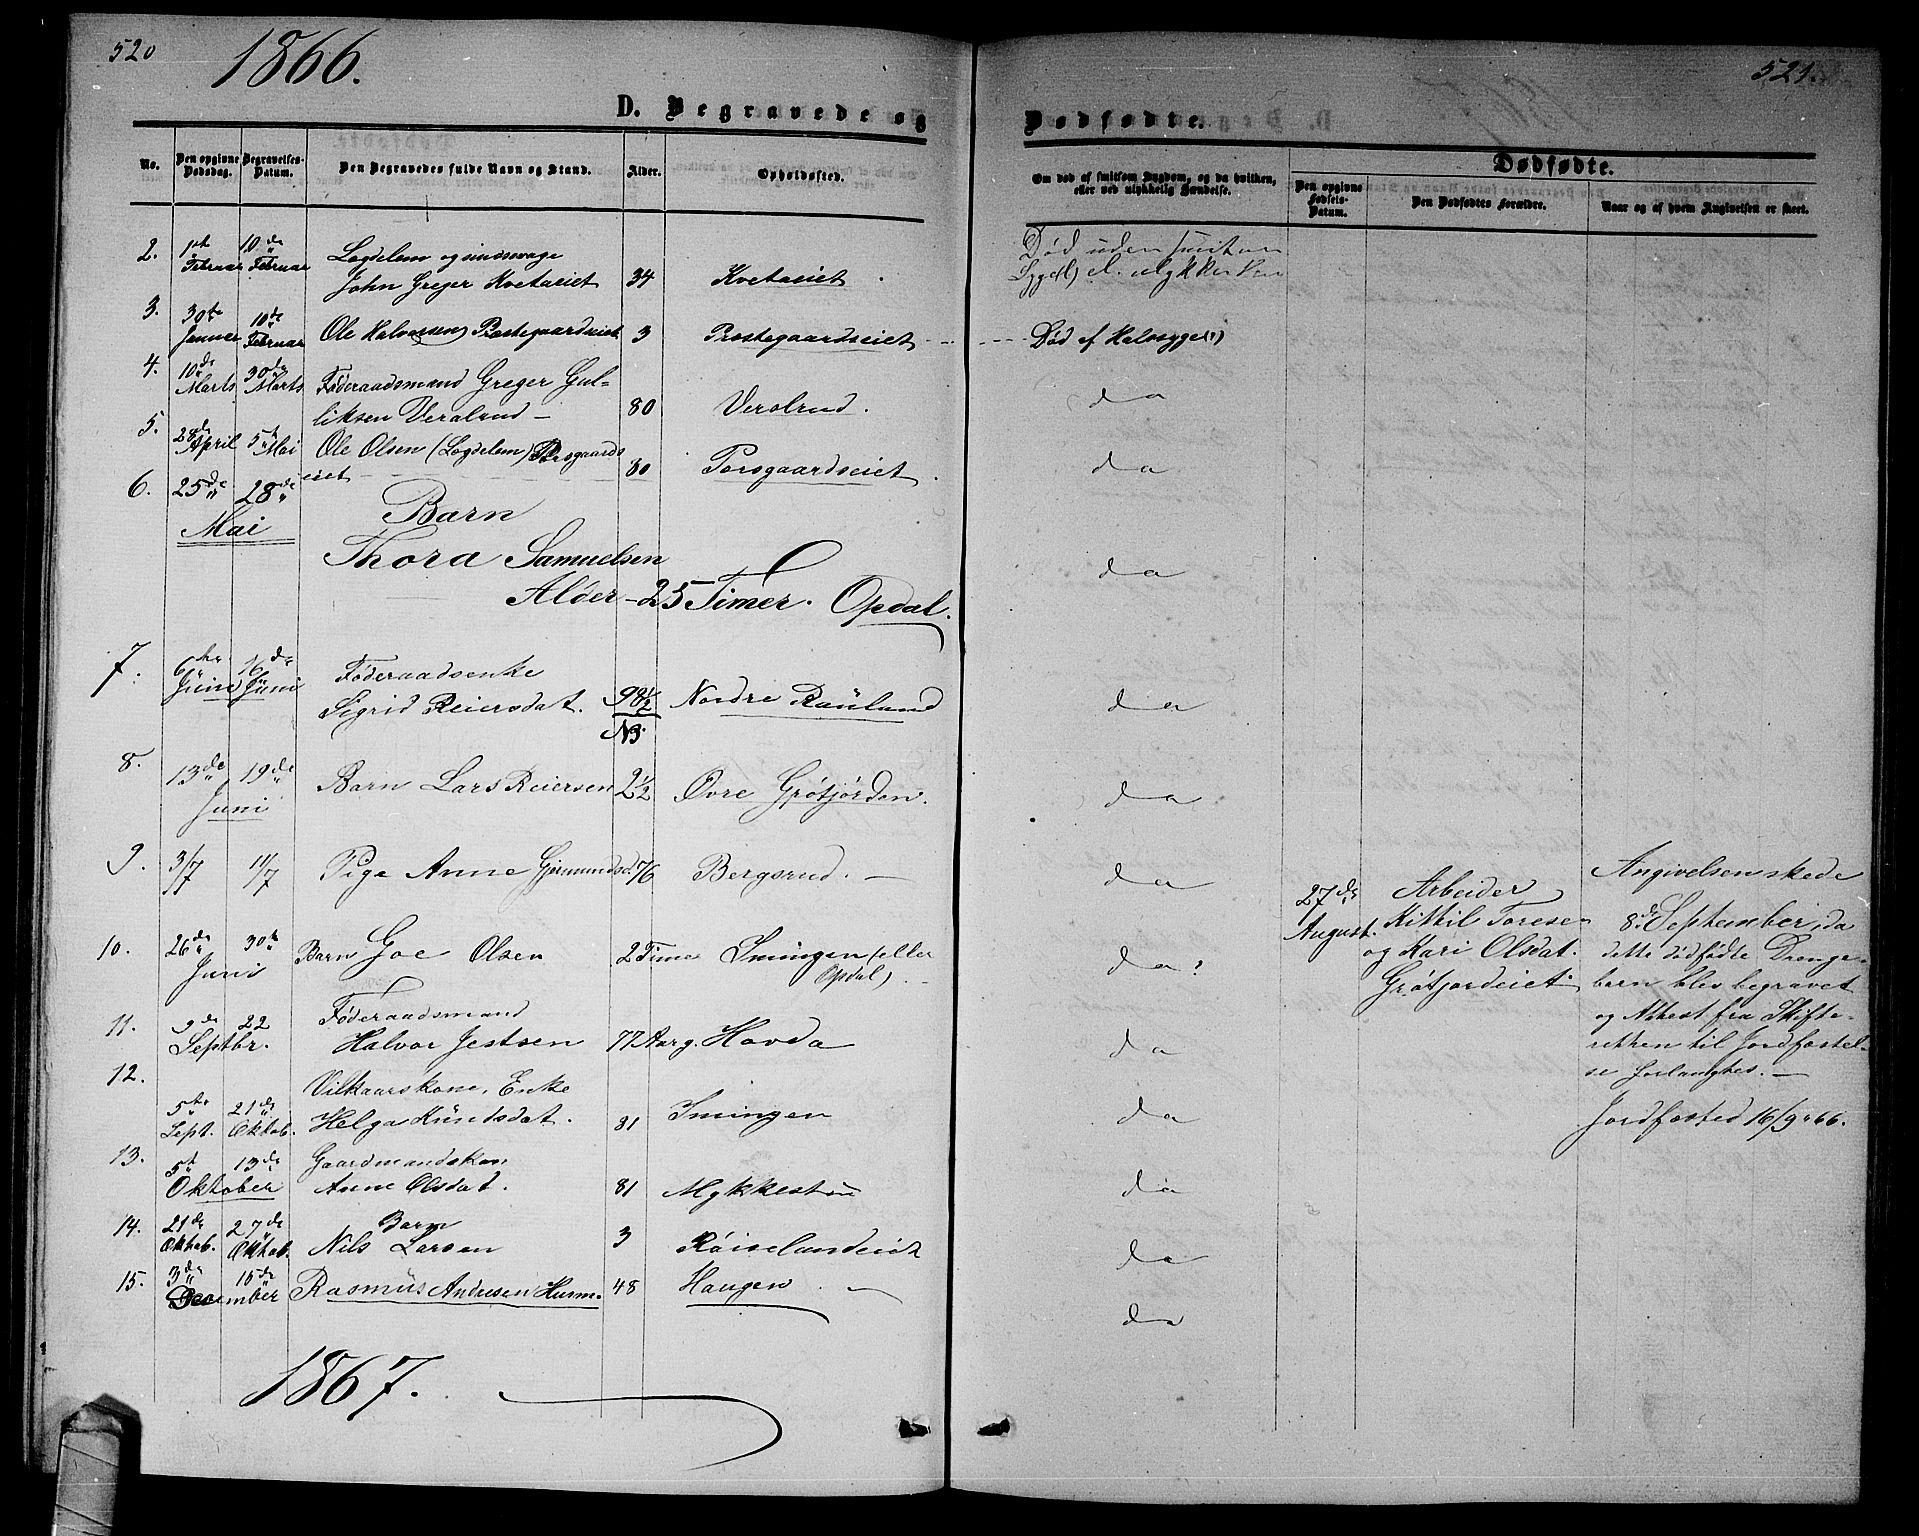 520
1866.
D. Begravede og
No.
Den opgivne Dødsdag.
Begravelses-Datum.
Den Begravedes fulde Navn og Stand.
Alder.
Opholdssted.
2. 1ste Februar 10de Februar Logdelem
John Greger Kvetaeiet 34 Kvetaeiet.
3. 30te Januar 10de Februar Ole Halvorsen Prestegaardseiet 3 Prestegaardseiet
4. 10de Marts 30te Marts Føderaadsmand Greger Gul-
liksen Veralrud — 80 Verslrud.
5. 28de April 5te Mai Ole Olsen (Logdelem) Porsgaards
eiet 80 Porsgaardseiet.
6. 25de 28de Mai Barn
Thora Samuelsen
Alder — 25 Timer. Opdal.
7. 6te Juni 16de Juni Føderaadsenke
Sigrid Reiersdat. 98½ Nordre Rauland
NB.
8. 13de 19de Juni Barn Lars Reiersen 2½ Øvre Grøtjorden.
9. 3/7 11/7 Pige Anne Gjermundsd. 76 Bergsrud. —
10. 26de 30te Juni Barn Goe Olsen 2 Time Smingen (eller
Opdal).
11. 9de 22 Septbr. Føderaadsmand
Halvor Jestsen 77 Aarg. Hovda
12. 5te Sept. 21de Oktob. Vilkaarskone, Enke
Helga Knudsdat. 81 Smingen
13. 5te 13de Oktober Gaardmandskon
Anne Olsdat. 81 Mykkestuu
14. 21de Oktob. 27de Oktob. Barn
Nils Larsen 3 Røiselandeiet
15. 3de 15de December Rasmus Andresen Husm. 48 Haugen —
1867.
521.
Dødfødte.
Om død af smitsom Sygdom, og da hvilken,
eller ved ulykkelig Hændelse.
Dødfødte.
Den opgivne Fødsels-Datum.
Den Dødfødtes Forældre.
Naar og af hvem Angivelsen er skeet.
Død uden smitsom
Syged) el. ulykke
Død af Halssyge(?)
do
do
do
do
do
do
do?
do
do
do
do
do
27de August. Arbeider
Kittil Torese-
og Kari Olsdat.
Grøtjordeiet
Angivelsen skede
8de September, da
dette dødfødte Drenge-
barn blev begravet
og Attest fra Skifte-
retten til Jordfæstel-
se forlangtes. —
Jordfæsted 16/9 66.